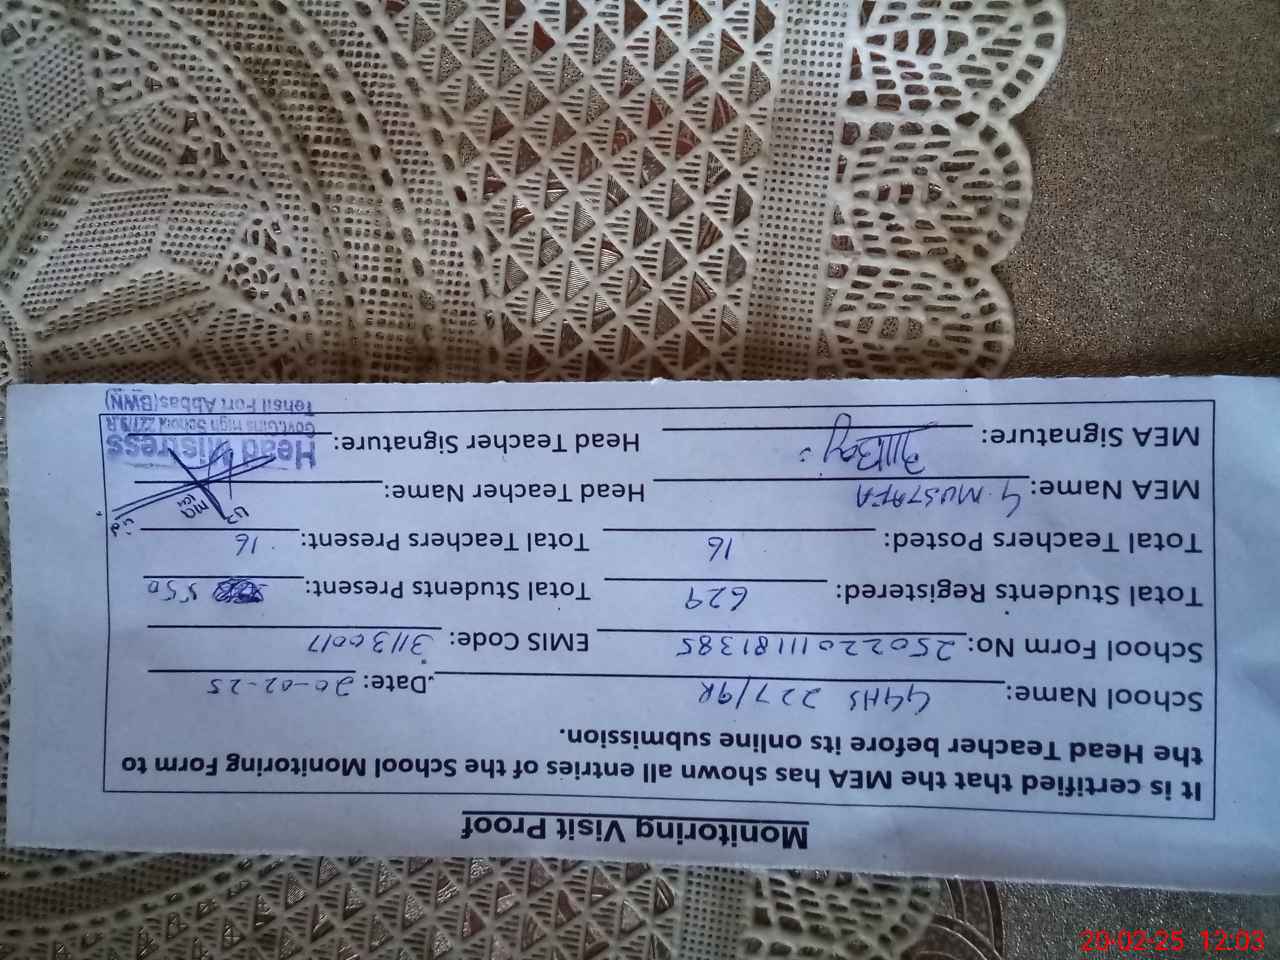 Monitoring Visit Proof
It is certified that the MEA has shown all entries of the School Monitoring Form to
the Head Teacher before its online submission.
School Name: GGHS 227/9R Date: 20-02-25
School Form No: 250220111181385 EMIS Code: 31130017
Total Students Registered: 629 Total Students Present: 550
Total Teachers Posted: 16 Total Teachers Present: 16
MEA Name: G. MUSTAFA Head Teacher Name:
MEA Signature: Head Teacher Signature:
Head Mistress
Govt. Girls High School 227/9.R
Tehsil Fort Abbas (BWN)
20-02-25 12:03